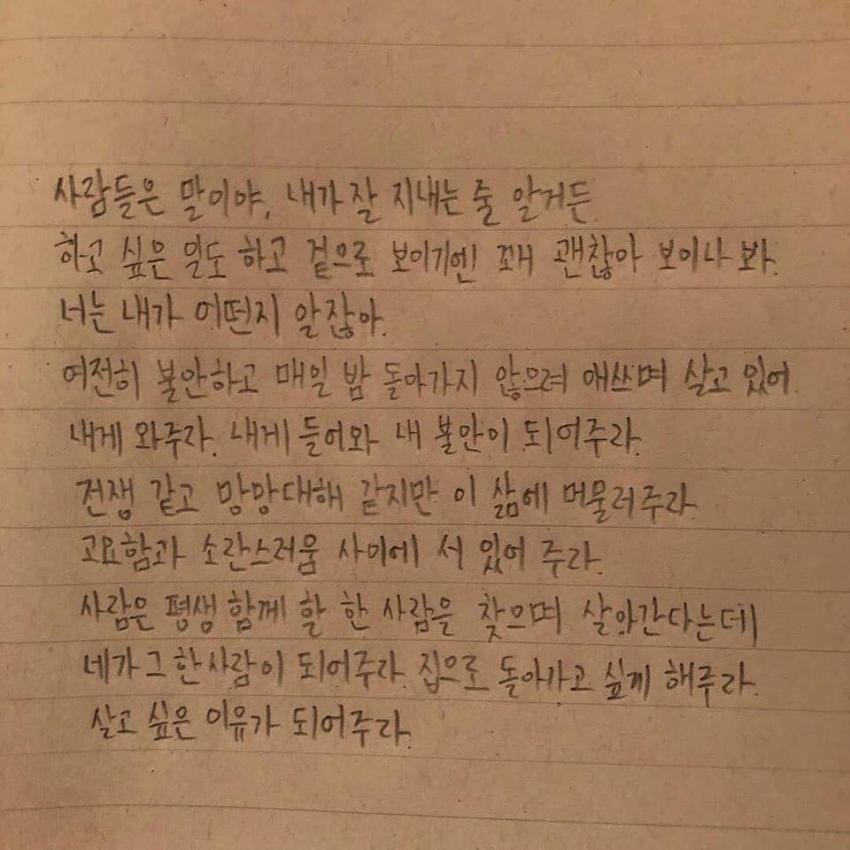 사람들은 말이야, 내가 잘 지내는 줄 알거든.
하고 싶은 일도 하고 겉으로 보이기엔 꽤 괜찮아 보이나 봐.
너는 내가 어떤지 알잖아.
여전히 불안하고 매일 밤 돌아가지 않으려 애쓰며 살고 있어.
내게 와주라. 내게 들어와 내 불안이 되어주라.
전쟁 같고 망망대해 같지만 이 삶에 머물러주라.
고요함과 소란스러움 사이에 서 있어 주라.
사람은 평생 함께 할 한 사람을 찾으며 살아간다는데
네가 그 한사람이 되어주라. 집으로 돌아가고 싶게 해주라.
살고 싶은 이유가 되어주라.